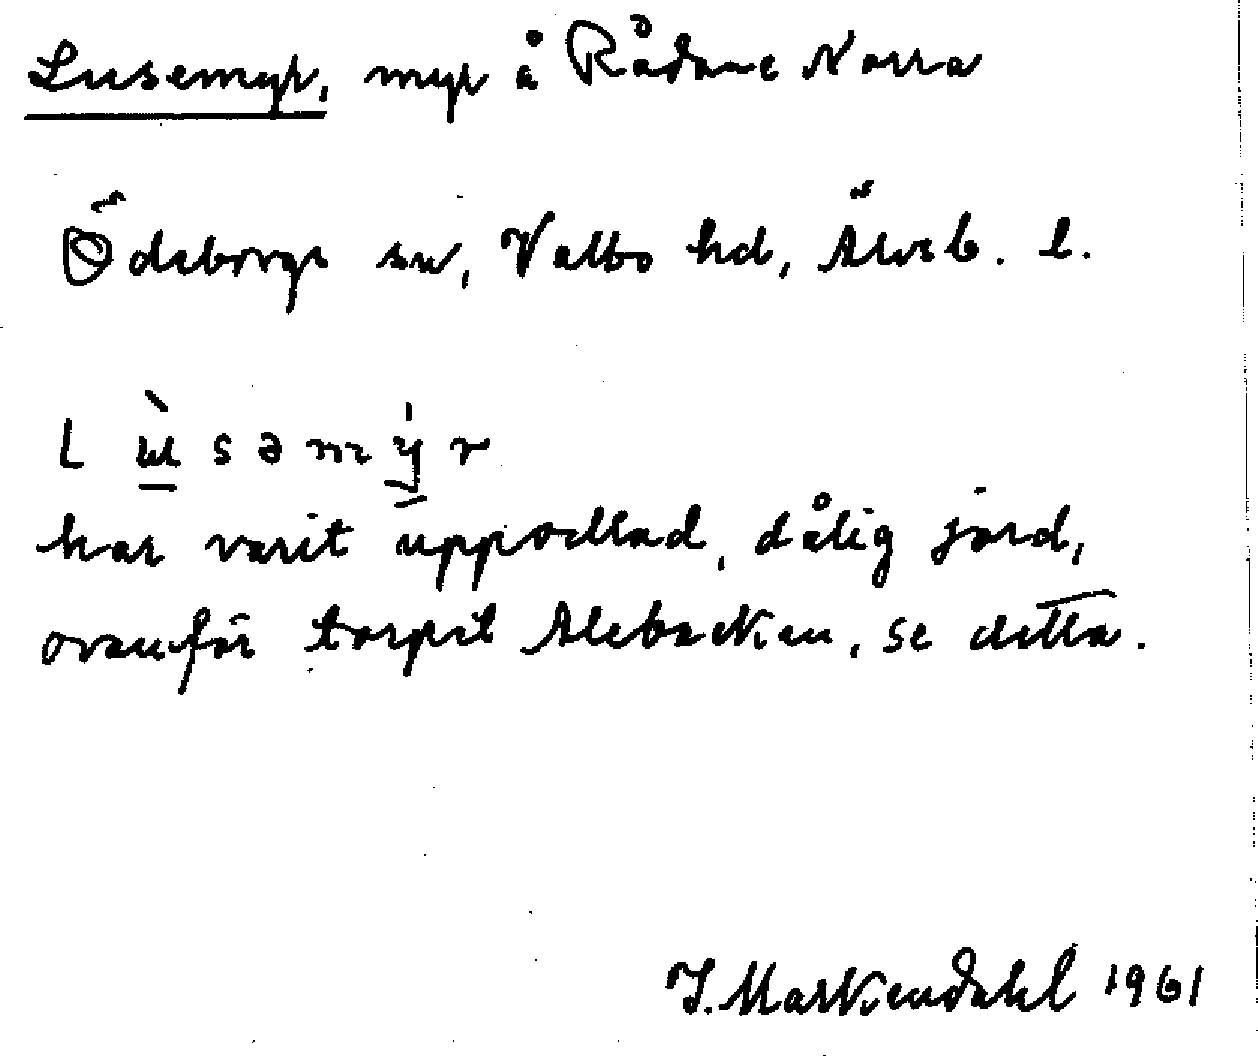 Lusemyr, myr å Rådane Norra
Ödeborgs sn, Valbo hd, Älvsb. l.
l ù s ə m ý r
har varit uppodlad, dålig jord,
ovanför torpet Alebacken, se detta.
J. Markendahl 1961